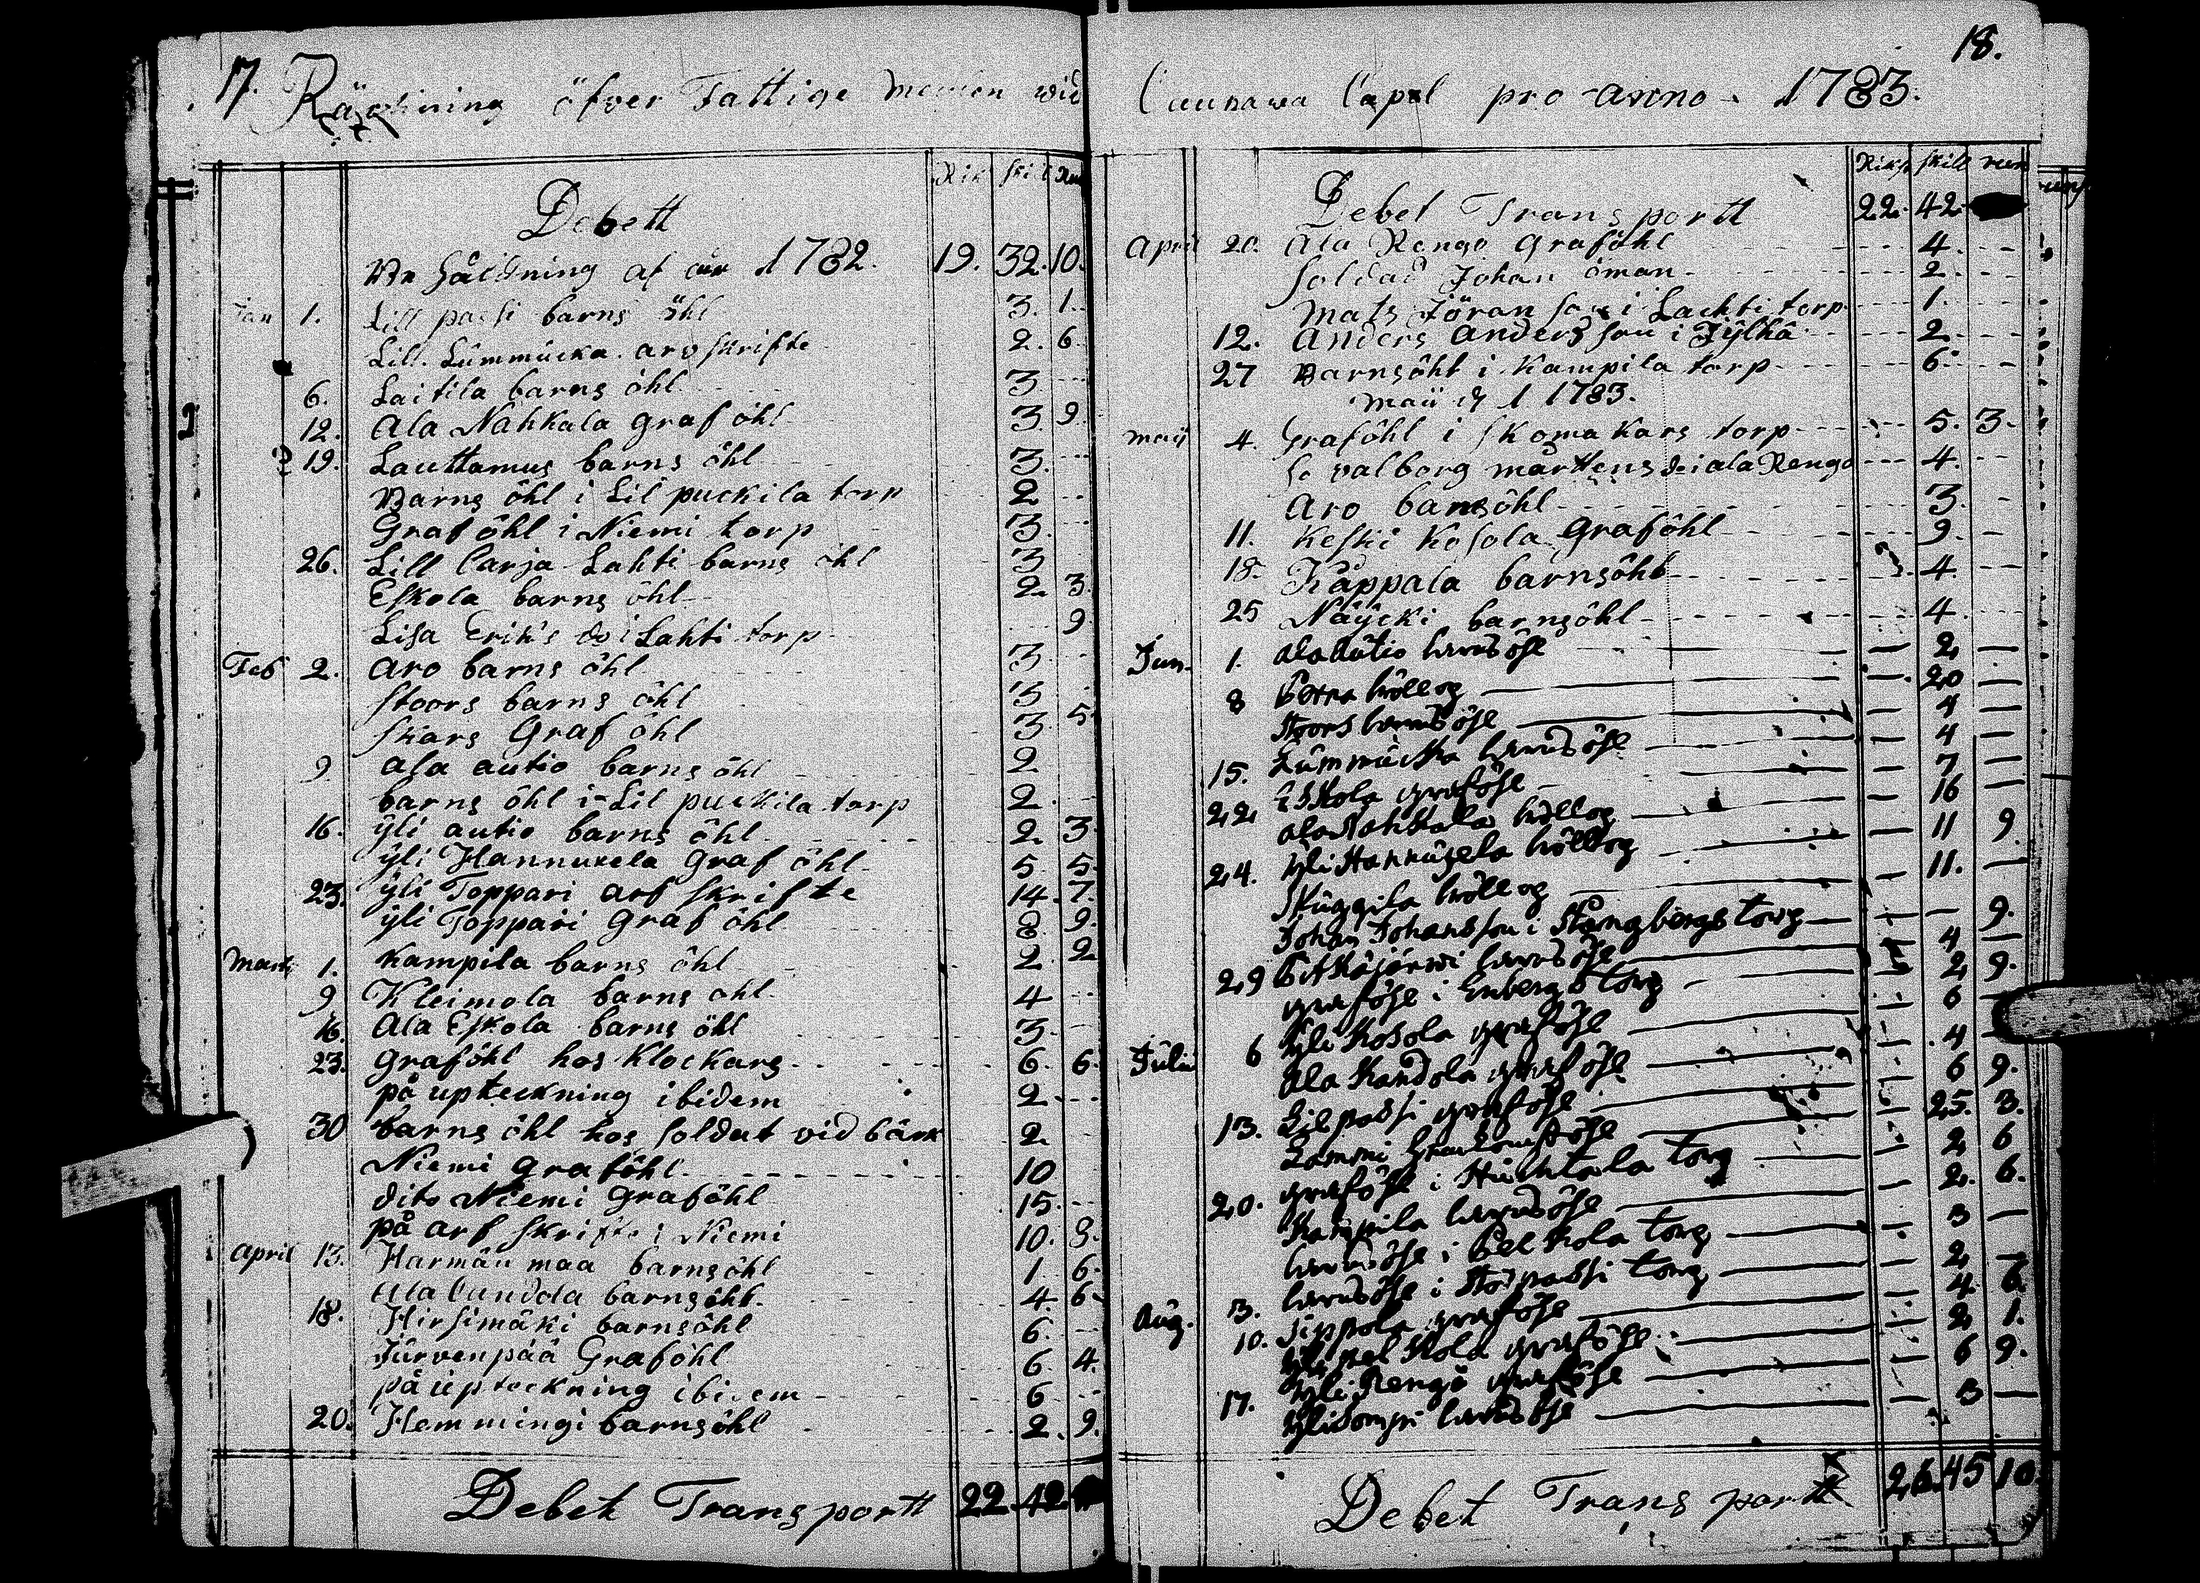 17. Räckning öfver Fattige Medlen wid
Debett
Rik skil Run
Behållning af år 1782. 19. 32. 10.
Jan 1. Lill passi barns öhl 3. 1.
Lill Lummucka arvskrifte 2. 6
6. Laitila barns öhl 3
12. Ala Nahkala Graf öhl 3. 9
19. Lauttamus barns öhl 3.
Barns öhl i Lil puckila torp 2
Graf öhl i Niemi torp 3.
26. Lill Carja Lahti barns öhl 3
Eskola barns öhl 2. 3
Lisa Eriks do i Lahti torp 9
Feb 2. Aro barns öhl 3.
Stoors barns öhl 3
Skars Graf öhl 3. 5
9 Ala autio barns öhl 2
barns öhl i Lil puckila torp 2.
16. ÿli autio barns öhl 2. 3
ÿli Hannuxela Graf öhl 5 5
23. ÿli Toppari arf skrifte 14. 7.
ÿli Toppari Graf öhl 8. 9.
Marti 1. Kampila barns öhl 2. 2
9 Kleimola barns öhl 4
16. Ala Eskola barns öhl 3.
23. Graföhl hos Klockars 6. 6.
på upteckning ibidem 2
30 barns öhl hos soldat vid bärk 2.
Niemi Graföhl 10
dito Niemi Graföhl 15.
på arf skrifte i Niemi 10. 8.
April 13. Harmän maa barnsöhl 1 6.
Ala Candola barnsöhl 4. 6
18. Hirsimäki barnsöhl 6.
Jurvenpää Graföhl 6. 4.
på upteckning ibidem 6
20. Hemmingi barnsöhl 2. 9.
Debet Transportt 22. 42
18.
Cauhawa Capel pro anno 1783.
Riks skill run
Debet Transportt 22. 42
April 20. Ala Rengo Graföhl 4.
Soldad Johan öman 2.
Mats Jöran son i Lachti torp 1.
12. Anders Andersson i Jÿlhä 2.
27 Barnsöhl i Kampila torp 6.
Maii d 1 1783.
maij 4. Graföhl i Skomakars torp 5. 3.
Valborg Mårttens d i ala Rengo 4.
Aro barnsöhl 3.
11. Keski Kosola Graföhl 9.
18. Käppala barnsöhl 4.
25 Näÿcki barnsöhl 4.
Jun. 1. Ala Autio barnsöhl 2
8 Perra bröllop 20
Stoors barnsöhl 4
15. Lummucka barnsöhl 4
22 Eskola graföhl 7
Ala Nahkala bröllop 16
24. ÿli Hannuxela bröllop 11 9
Skuggila bröllop 11.
Johan Johansson i Stangbergs torp 9.
29 Pitkäjärwi barnsöhl 4
graföhl i Enbergs torp 2 9.
Julii 6 ÿli Kosola graföhl 6
Ala Kandola graföhl 4
13. Lilpassi graföhl 6 9.
Lammi 25. 3.
20. graföhl i Huhtala torp 2 6
Kampila barnsöhl 2. 6.
barnsöhl i Pelkola torp 3
Aug. 3. barnsöhl i Storpassi torp 2
10. Sippola graföhl 4. 6.
ÿli Pelkola graföhl 2 1.
17. ÿli Rengo graföhl 6 9.
barnsöhl 3
Debet Transportt 26. 45 10